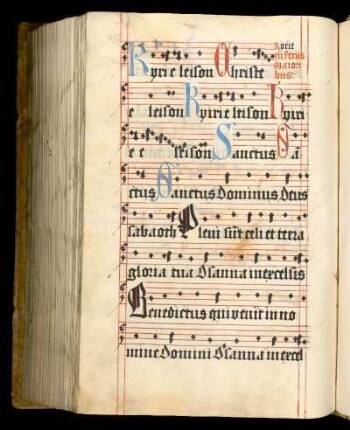 Kyrie leison Christe
Kyrie
in festis
maiori
bus.
e leison Kyrie leison Kyri
e e leison Sanctus Sā
ctus Sanctus Dominus Deus
sabaoth Pleni sūt celi et terra
gloria tua Osanna in excelsis
Benedictus qui venit in no
mine Domini Osanna in excel